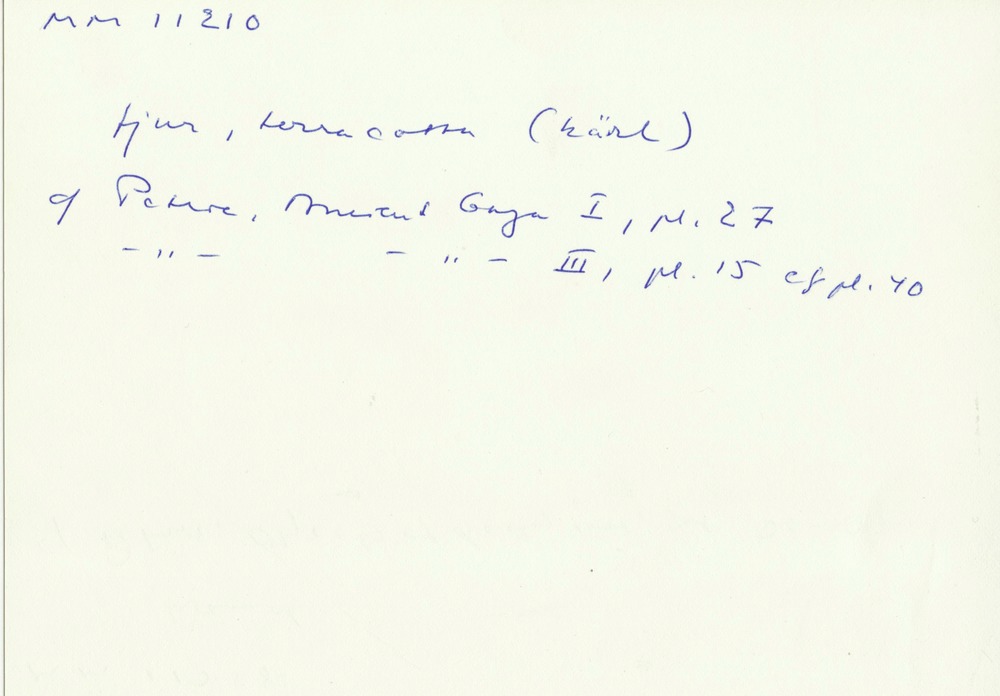 MM 11210
tjur, terracotta (kärl)
cf Petrie, Ancient Gaza I, pl. 27
-"- -"- III, pl. 15 cf pl. 40